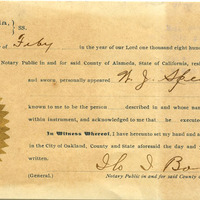 ss.
of Feby in the year of our Lord one thousand eight hun
Notary Public in and for said County of Alameda, State of California, resi
and sworn, personally appeared W. J. Spe
known to me to be the person described in and whose nam
within instrument, and acknowledged to me that he execute
In Witness Whereof, I have hereunto set my hand and a
in the City of Oakland, County and State aforesaid the day and
written.
(General.) Notary Public in and for said County o